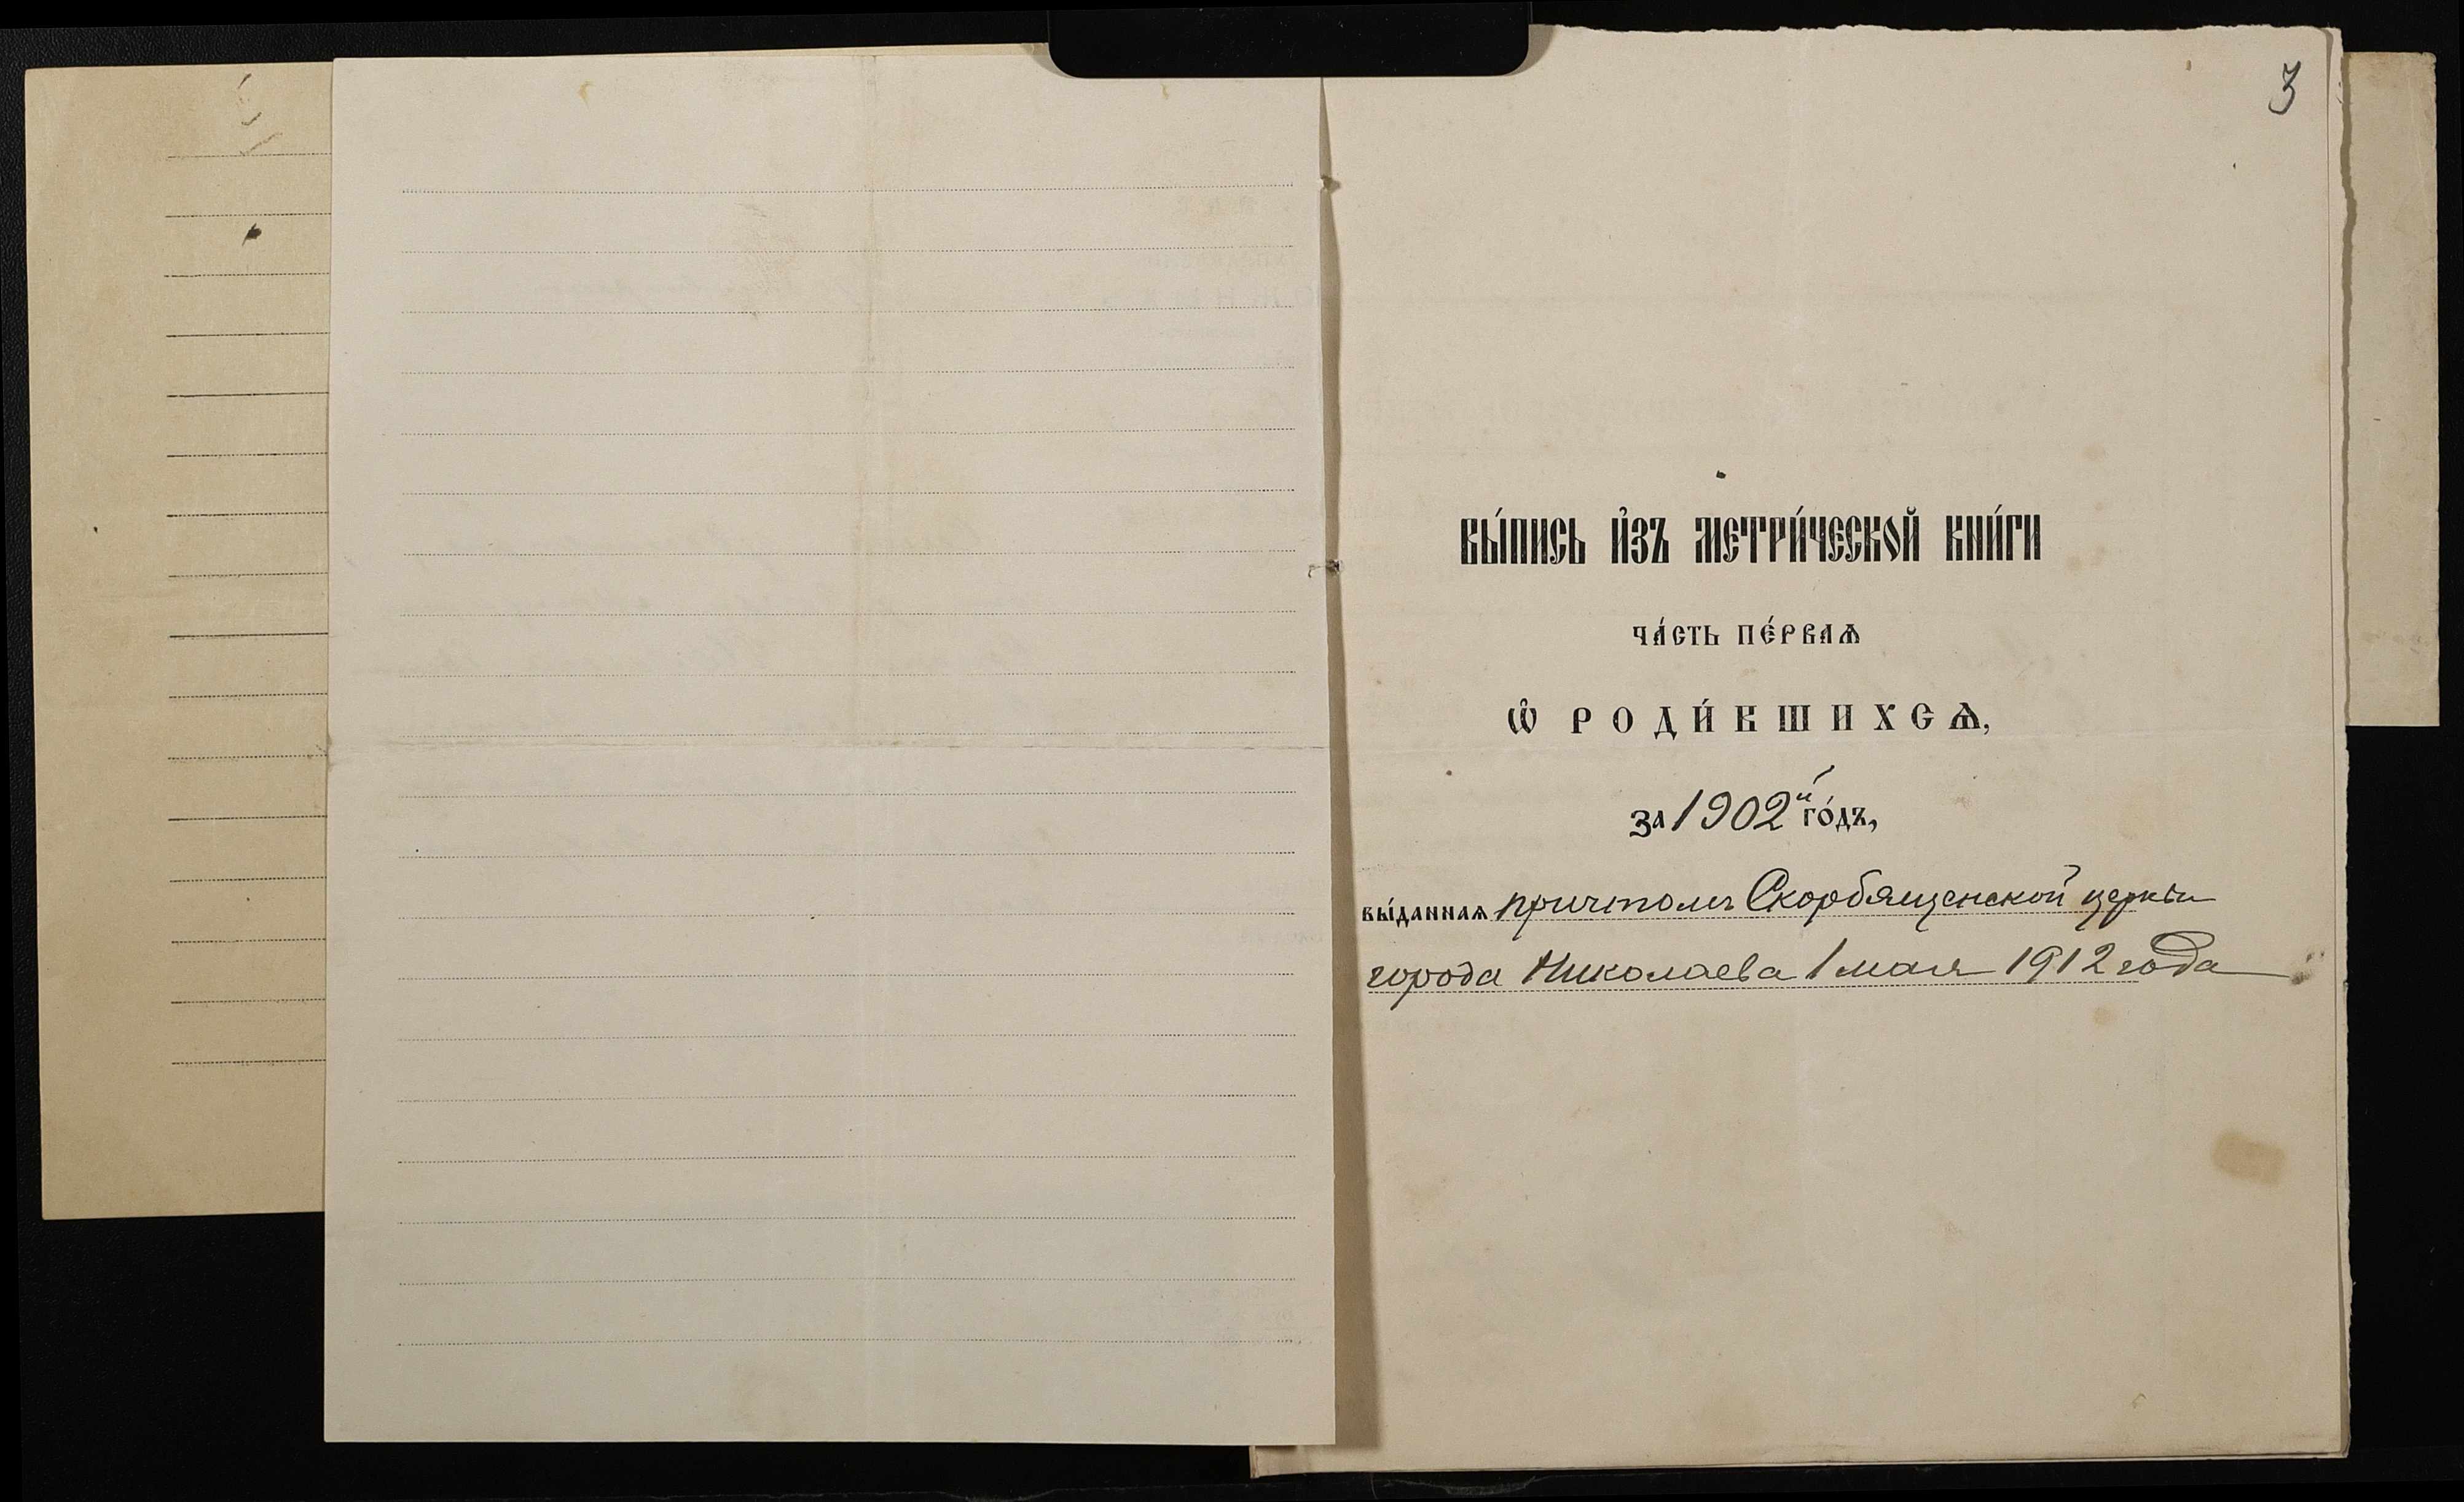 3
Вы́пись и҆зъ метри́ческой кни́ги
ча́сть пе́рваѧ
ѡ҆ роди́вшихсѧ,
за 1902й го́дъ,
вы́даннаѧ причтомъ Скорбященской церкви
города Николаева 1 мая 1912 года